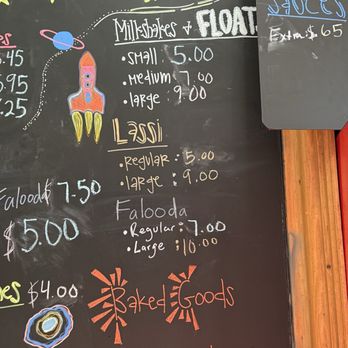 es
.45
.95
.25
Falooda 7.50
$5.00
es $4.00
Milkshakes & FLOAT
• Small 5.00
• Medium 7.00
• large 9.00
Lassi
• Regular : 5.00
• large : 9.00
Falooda
• Regular : 7.00
• Large : 10.00
Baked Goods
SAUCES
Extra: $.65